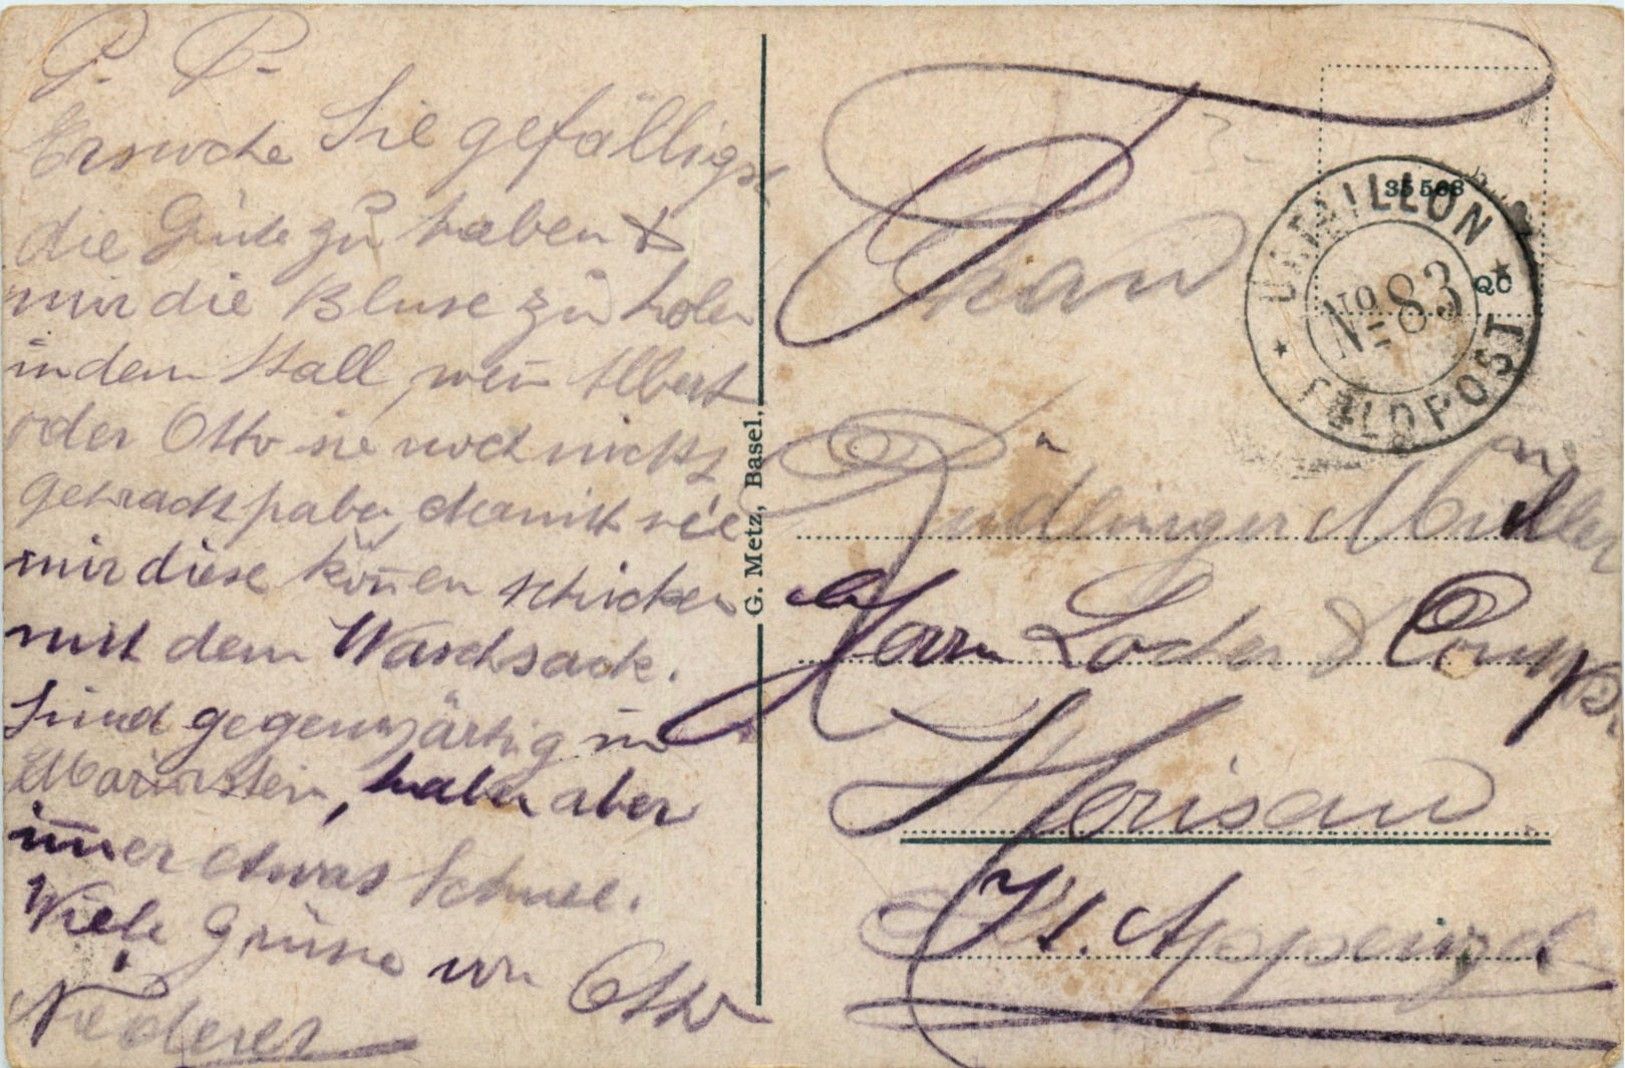 P. P.
Ersuche Sie gefälligst
die Güte zu haben &
mir die Bluse zu holen
in dem Stall, wen̄ Albert
oder Otto sie noch nicht
gebracht haben, damit sie
mir diese kön̄en schicken
mit dem Waschsack.
Sind gegenwärtig in
Mariastein, haben aber
im̄er etwas Schnee.
Viele Grüsse von Otto
Niederer
G. Metz, Basel.
35568
BATAILLON
No 83
FELDPOST
Frau
Müller
Herrn Locher & Comp.
Herisau
Kt. Appenzel